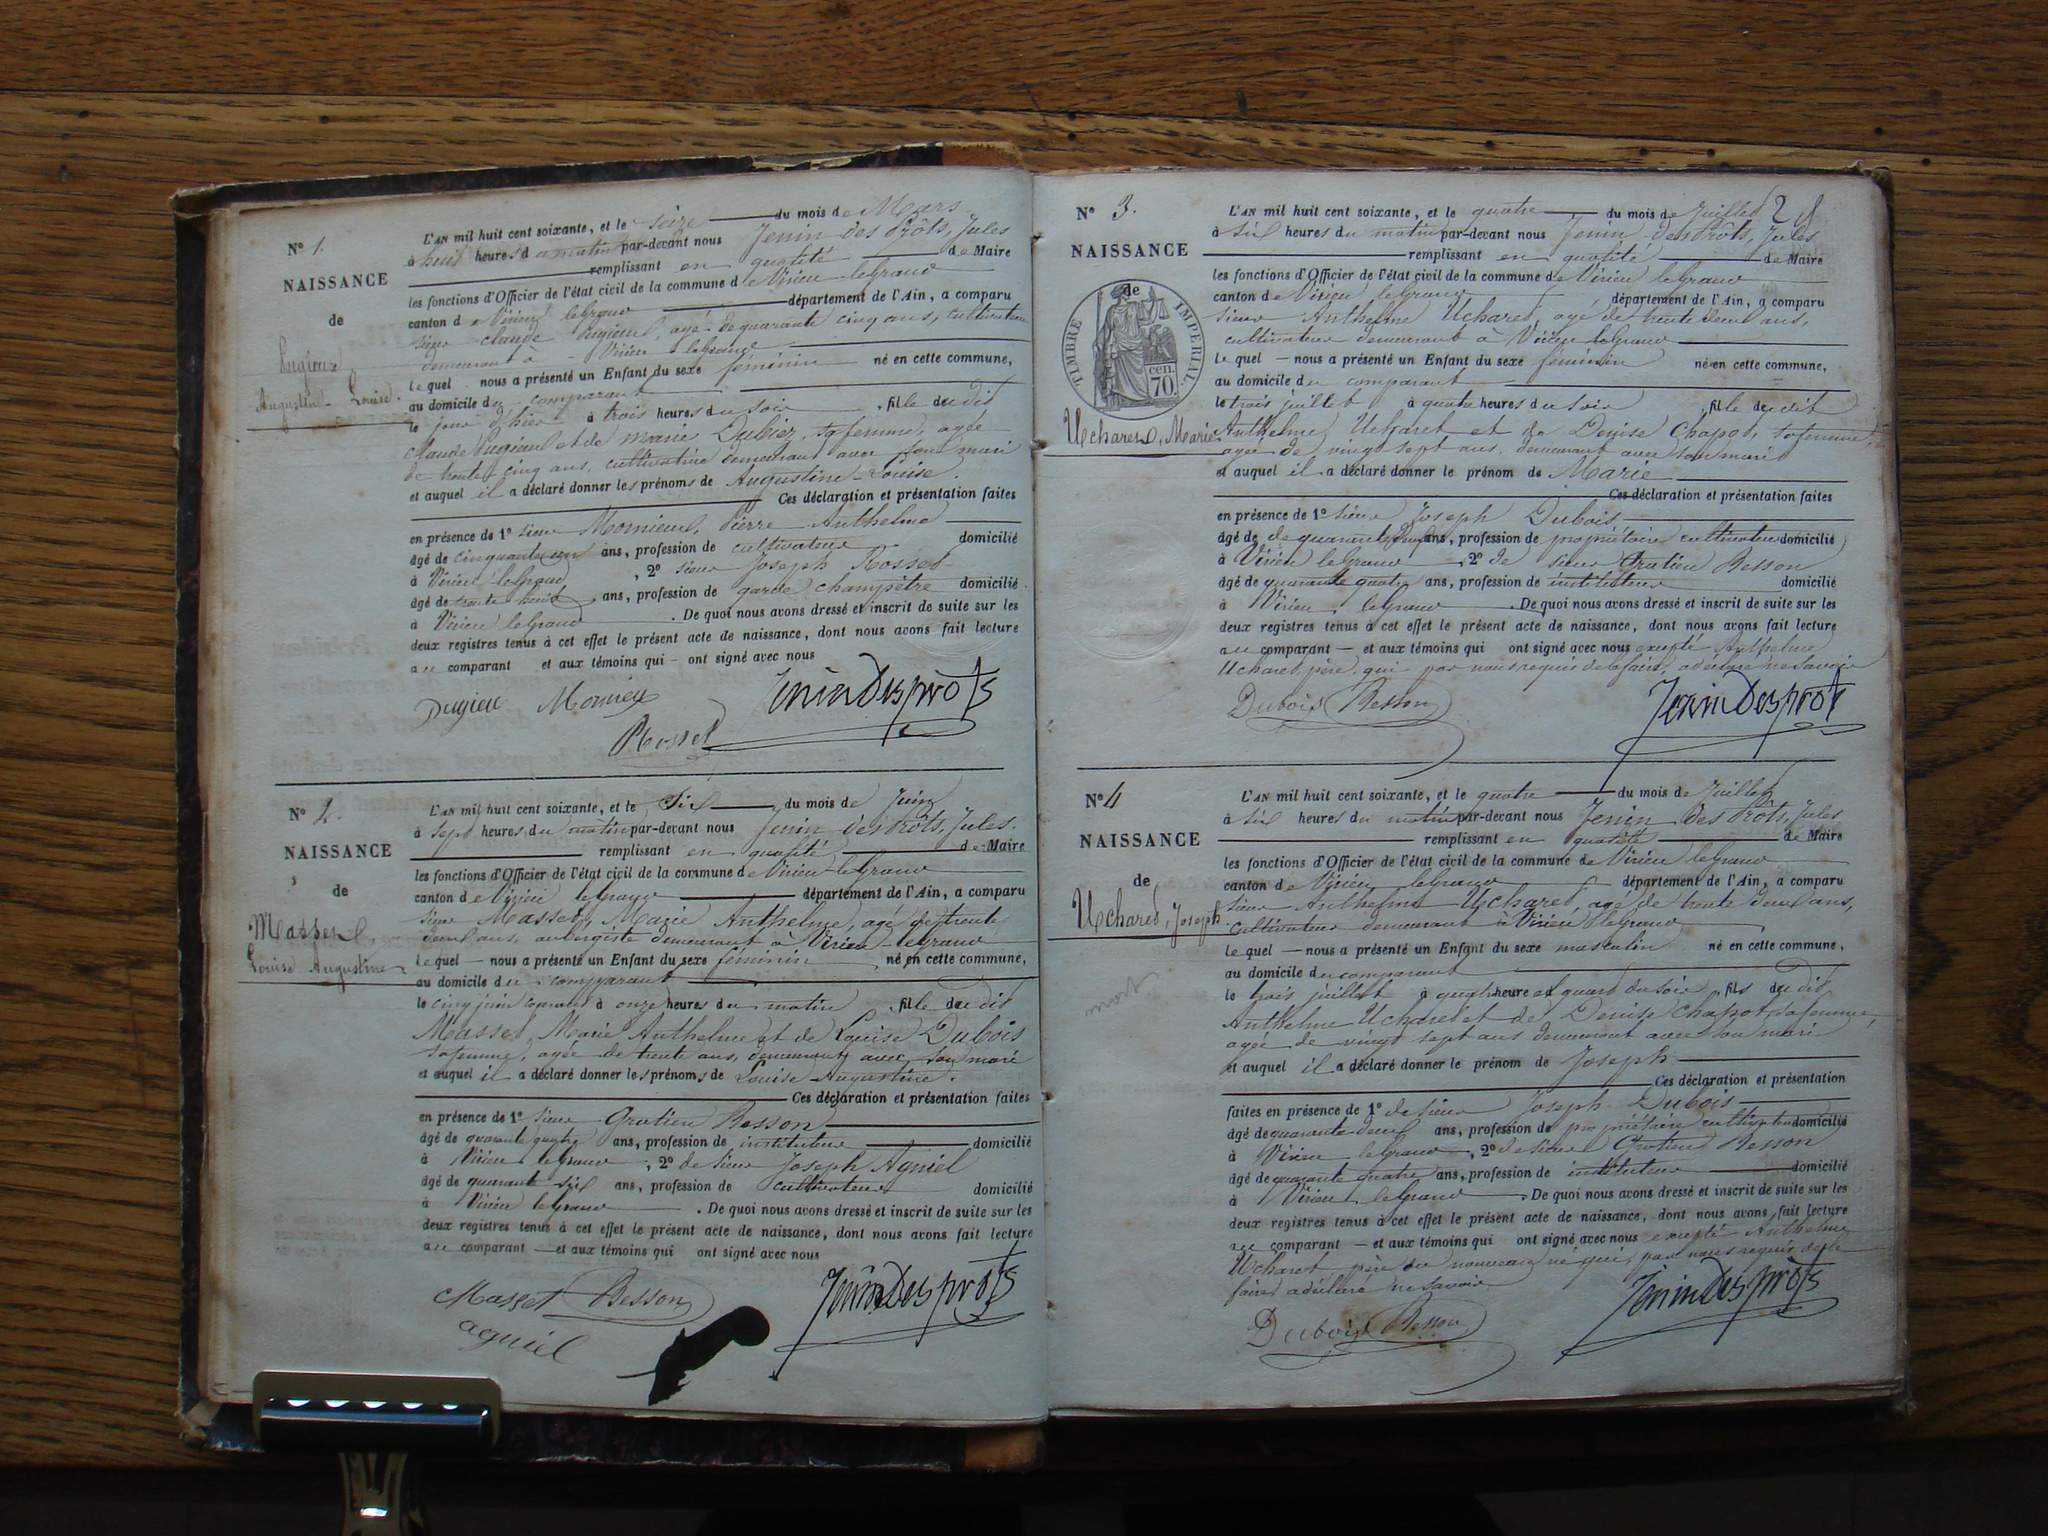 N° 1.
NAISSANCE
de
Augustine-Louise.
L'AN mil huit cent soixante, et le seize du mois de Mars
à huit heures du matin par-devant nous Jenin des Prôts, Jules
remplissant en qualité de Maire
les fonctions d'Officier de l'état civil de la commune de Virieu legrand
canton de Virieu legrand département de l'Ain, a comparu
sieur claude agé de quarante cinq ans, cultivateur
demeurant à Virieu legrand
lequel nous a présenté un Enfant du sexe féminin né en cette commune,
au domicile du comparant
le jour d'hier à trois heures du soir, fille du dit
claude et de marie Dubiez, sa femme, agée
de trente cinq ans, cultivatrice demeurant avec son mari
et auquel il a déclaré donner les prénoms de Augustine-Louise.
Ces déclaration et présentation faites
en présence de 1° sieur Pierre Anthelme
âgé de cinquante un ans, profession de cultivateur domicilié
à Virieu legrand, 2° sieur Joseph Rosset
âgé de trente huit ans, profession de garde champêtre domicilié
à Virieu legrand. De quoi nous avons dressé et inscrit de suite sur les
deux registres tenus à cet effet le présent acte de naissance, dont nous avons fait lecture
au comparant et aux témoins qui ont signé avec nous
JeninDesprôts
Rosset
N° 2.
NAISSANCE
de
Masset,
Louise Augustine
L'AN mil huit cent soixante, et le six du mois de Juin
à sept heures du matin par-devant nous Jenin des Prôts, Jules.
remplissant en qualité de Maire
les fonctions d'Officier de l'état civil de la commune de Virieu legrand
canton de Virieu legrand département de l'Ain, a comparu
sieur Masset, Marie Anthelme, agé de trente
deux ans, aubergiste demeurant à Virieu-legrand
lequel nous a présenté un Enfant du sexe féminin né en cette commune,
au domicile du comparant
le cinq juin courant à onze heures du matin, fille du dit
Masset, Marie Anthelme et de Louise Dubois
sa femme, agée de trente ans, demeurant avec son mari
et auquel il a déclaré donner les prénoms de Louise-Augustine.
Ces déclaration et présentation faites
en présence de 1° sieur Gratien Besson
âgé de quarante quatre ans, profession de instituteur domicilié
à Virieu legrand, 2° de sieur Joseph Agniel
âgé de quarante six ans, profession de cultivateur domicilié
à Virieu legrand. De quoi nous avons dressé et inscrit de suite sur les
deux registres tenus à cet effet le présent acte de naissance, dont nous avons fait lecture
au comparant et aux témoins qui ont signé avec nous
Masset Besson JeninDesprôts
agniel
N° 3.
NAISSANCE
de
TIMBRE IMPÉRIAL.
70 cen.
Ucharet, Marie
2
L'AN mil huit cent soixante, et le quatre du mois de Juillet
à six heures du matin par-devant nous Jenin-des Prôts, Jules
remplissant en qualité de Maire
les fonctions d'Officier de l'état civil de la commune de Virieu legrand
canton de Virieu legrand département de l'Ain, a comparu
sieur Anthelme Ucharet, agé de trente deux ans,
cultivateur demeurant à Virieu legrand
lequel nous a présenté un Enfant du sexe féminin né en cette commune,
au domicile du comparant
le trois juillet à quatre heures du soir, fille du dit
Anthelme Ucharet et de Denise Chapot, sa femme,
agée de vingt sept ans, demeurant avec son mari
et auquel il a déclaré donner le prénom de Marie
Ces déclaration et présentation faites
en présence de 1° sieur Joseph Dubois
âgé de de quarante deux ans, profession de propriétaire cultivateur domicilié
à Virieu legrand, 2° de sieur Gratien Besson
âgé de quarante quatre ans, profession de instituteur domicilié
à Virieu legrand. De quoi nous avons dressé et inscrit de suite sur les
deux registres tenus à cet effet le présent acte de naissance, dont nous avons fait lecture
au comparant et aux témoins qui ont signé avec nous excepté Anthelme
Ucharet, père, qui par nous requis de le faire, a déclaré ne savoir
Dubois Besson JeninDesprôts
N° 4
NAISSANCE
de
Ucharet, Joseph.
L'AN mil huit cent soixante, et le quatre du mois de Juillet
à six heures du matin par-devant nous Jenin des Prôts, Jules
remplissant en qualité de Maire
les fonctions d'Officier de l'état civil de la commune de Virieu legrand
canton de Virieu legrand département de l'Ain, a comparu
sieur Anthelme Ucharet, agé de trente deux ans,
cultivateur demeurant à Virieu legrand
lequel nous a présenté un Enfant du sexe masculin né en cette commune,
au domicile du comparant
le trois juillet à quatre heure et quart du soir, fils du dit
Anthelme Ucharet et de Denise Chapot, sa femme,
agée de vingt sept ans demeurant avec son mari
et auquel il a déclaré donner le prénom de Joseph
Ces déclaration et présentation
faites en présence de 1° de sieur Joseph Dubois
âgé de quarante deux ans, profession de propriétaire cultivateur domicilié
à Virieu legrand, 2° de sieur Gratien Besson
âgé de quarante quatre ans, profession de instituteur domicilié
à Virieu legrand. De quoi nous avons dressé et inscrit de suite sur les
deux registres tenus à cet effet le présent acte de naissance, dont nous avons fait lecture
au comparant et aux témoins qui ont signé avec nous excepté Anthelme
Ucharet père du nouveau né qui, par nous requis de le
faire, a déclaré ne savoir
Dubois Besson JeninDesprôts